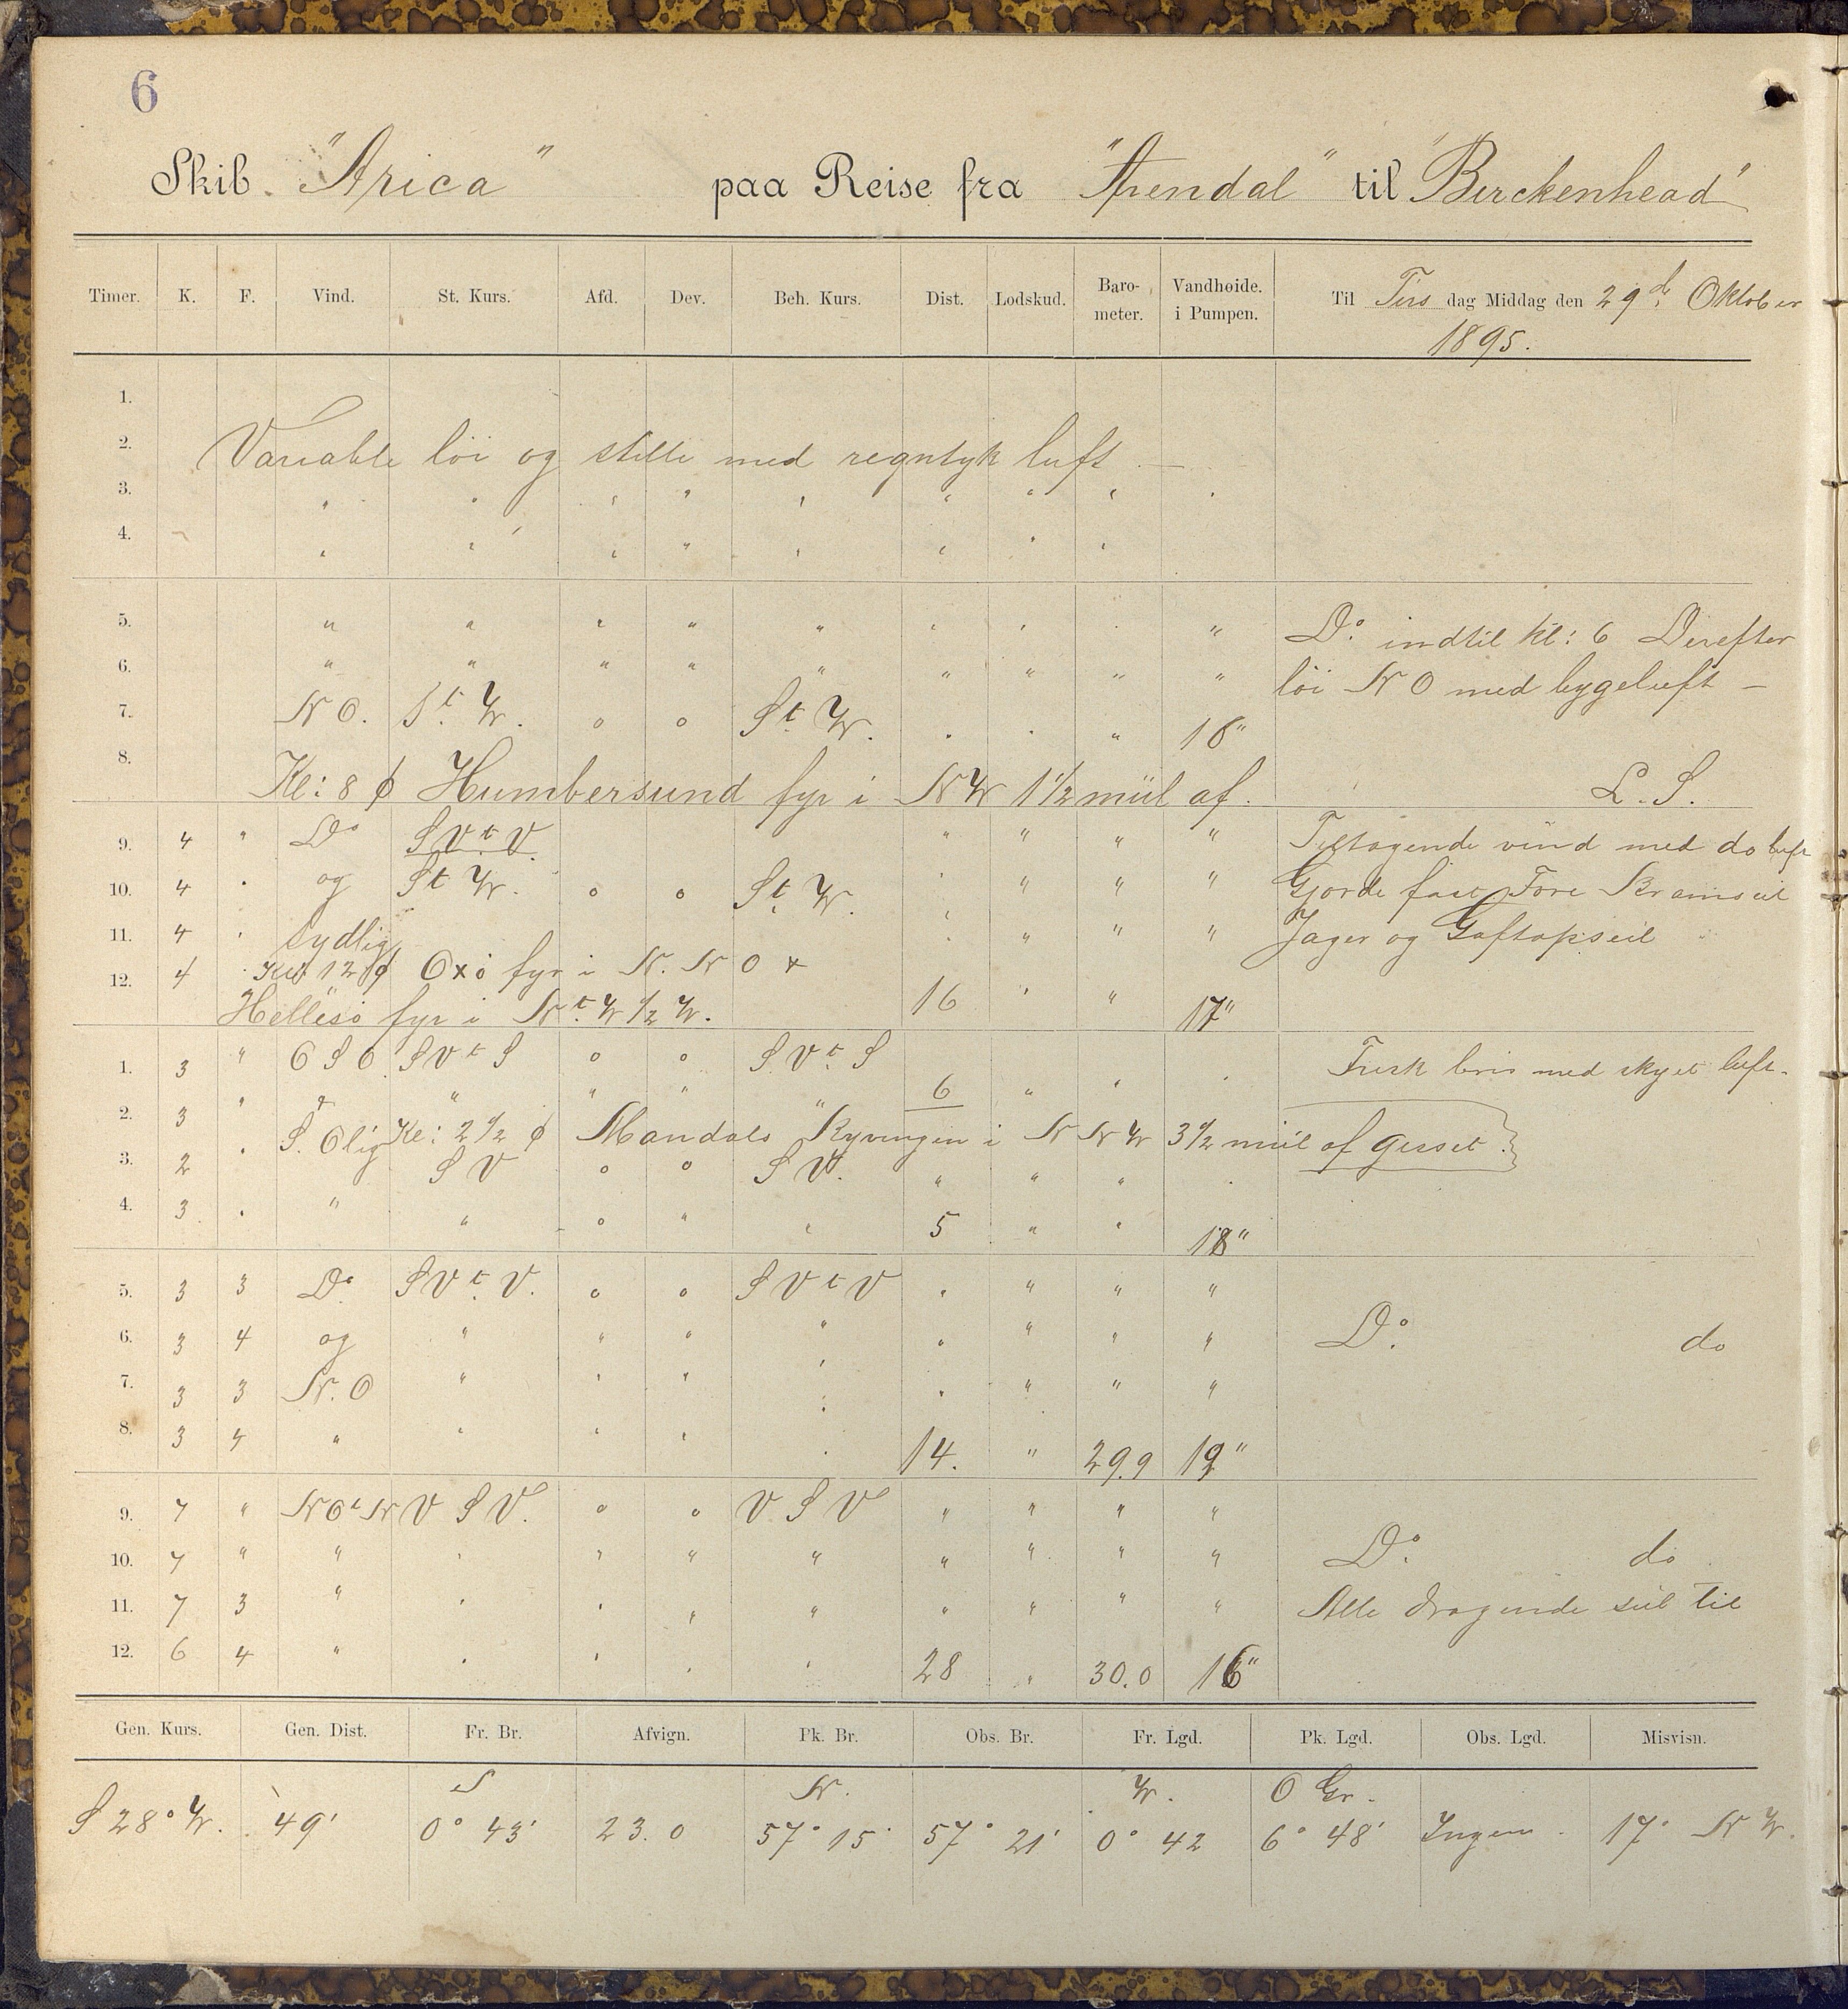 6
Skib "Arica" paa Reise fra "Arendal" til "Birckenhead"
Timer. K. F. Vind. St. Kurs. Afd. Dev. Beh. Kurs. Dist. Lodskud. Baro-meter. Vandhøide. i Pumpen. Til Tirs dag Middag den 29de Oktober
1895.
1.
2. Variable löi og stille med regntyk luft. —
3. " " " " " " " " "
4. " " " " " " " "
5. " " " " " " " " " Do. indtil kl: 6 Derefter
6. " " " " " " " " " löi N O med bygeluft —
7. N O. St. W. o o St. W. " " " 16"
8. Kl: 8 ϕ Humbersund fyr i N W 1 1/2 miil af. L. S.
9. 4 " Do S V t. V. " " " " Tiltagende vind med do luft
10. 4 " og St W. o o St. W. " " " " Gjorde fast Fore Bramseil
11. 4 " Sydlig " " " " Jager og Gaftopseil
12. 4 " Kl 12 ϕ Oxö fyr i N. N O &
Hellesö fyr i N t. W 1/2 W. 16 " " 17"
1. 3 " O S O S V t S o o S V t. S " " " Frisk bris med skyet luft.
2. 3 " & " " " " 6 " "
S. Olig Kl: 2 1/2 ϕ Mandals Ryvingen i N N W 3 1/2 miil af gisset.
3. 2 " S V o o S V. " " " "
4. 3 " " " o " " 5 " " 18"
5. 3 3 Do S V t. V. o o S V t V " " " "
6. 3 4 og " " " " " " " " Do. do
7. 3 3 N. O " " " " " " " "
8. 3 4 " " " " " 14. " 29.9 19"
9. 7 " N O t N V S V. o o V. S V " " " "
10. 7 " " " " " " " " " " Do. do
11. 7 3 " " " " " " " " " Alle dragende seil til
12. 6 4 " " " " " 28 " 30.0 16"
Gen. Kurs. Gen. Dist. Fr. Br. Afvign. Pk. Br. Obs. Br. Fr. Lgd. Pk. Lgd. Obs. Lgd. Misvisn.
S N. W. O Gr.
S 28° W. 49' 0° 43' 23.0 57° 15' 57° 21' 0° 42 6° 48' Ingen. 17° N W.